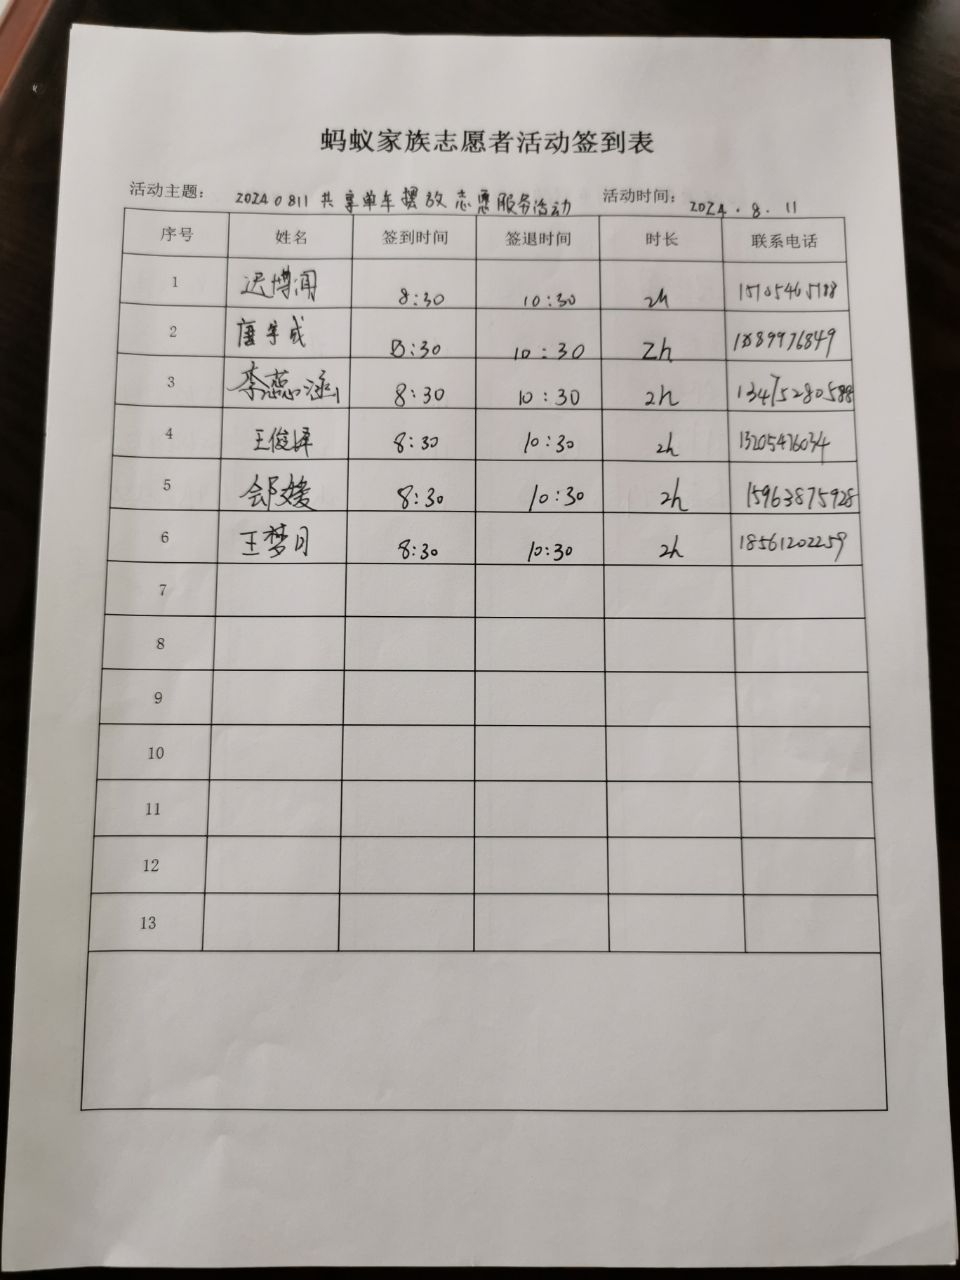 蚂蚁家族志愿者活动签到表
活动主题： 20240811共享单车摆放志愿服务活动 活动时间： 2024.8.11
序号 姓名 签到时间 签退时间 时长 联系电话
1 迟博闻 8:30 10:30 2h
2 唐宇成 8:30 10:30 2h
3 李蕊涵 8:30 10:30 2h 13475280588
4 王俊 8:30 10:30 2h 13205476034
5 媛 8:30 10:30 2h 15963875928
6 王梦月 8:30 10:30 2h 18561202259
7
8
9
10
11
12
13